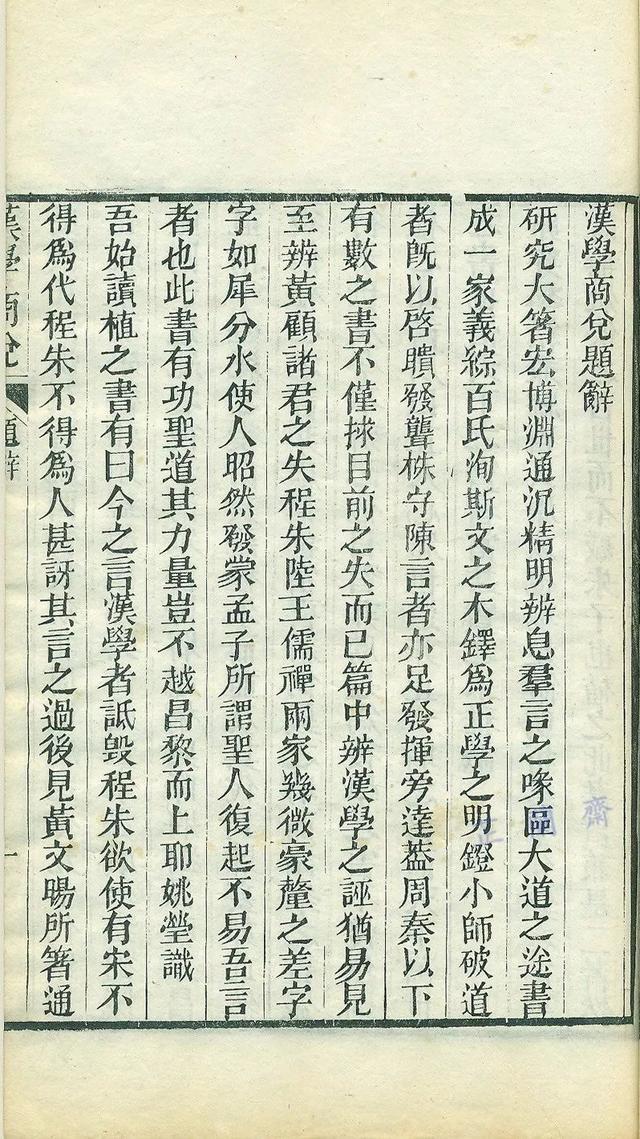 漢學商兌題辭
研究大箸宏博淵通沉精明辨息羣言之喙區大道之途書
成一家義綜百氏洵斯文之木鐸爲正學之明鐙小師破道
者旣以啓聵發聾株守陳言者亦足發揮旁達葢周秦以下
有數之書不僅捄目前之失而已篇中辨漢學之誣猶易見
至辨黃顧諸君之失程朱陸王儒禪兩家幾微豪釐之差字
字如犀分水使人昭然發蒙孟子所謂聖人復起不易吾言
者也此書有功聖道其力量豈不越昌黎而上耶姚瑩識
吾始讀植之書有曰今之言漢學者詆毀程朱欲使有宋不
得爲代程朱不得爲人甚訝其言之過後見黃文暘所箸通
漢學商兌 題辭 一